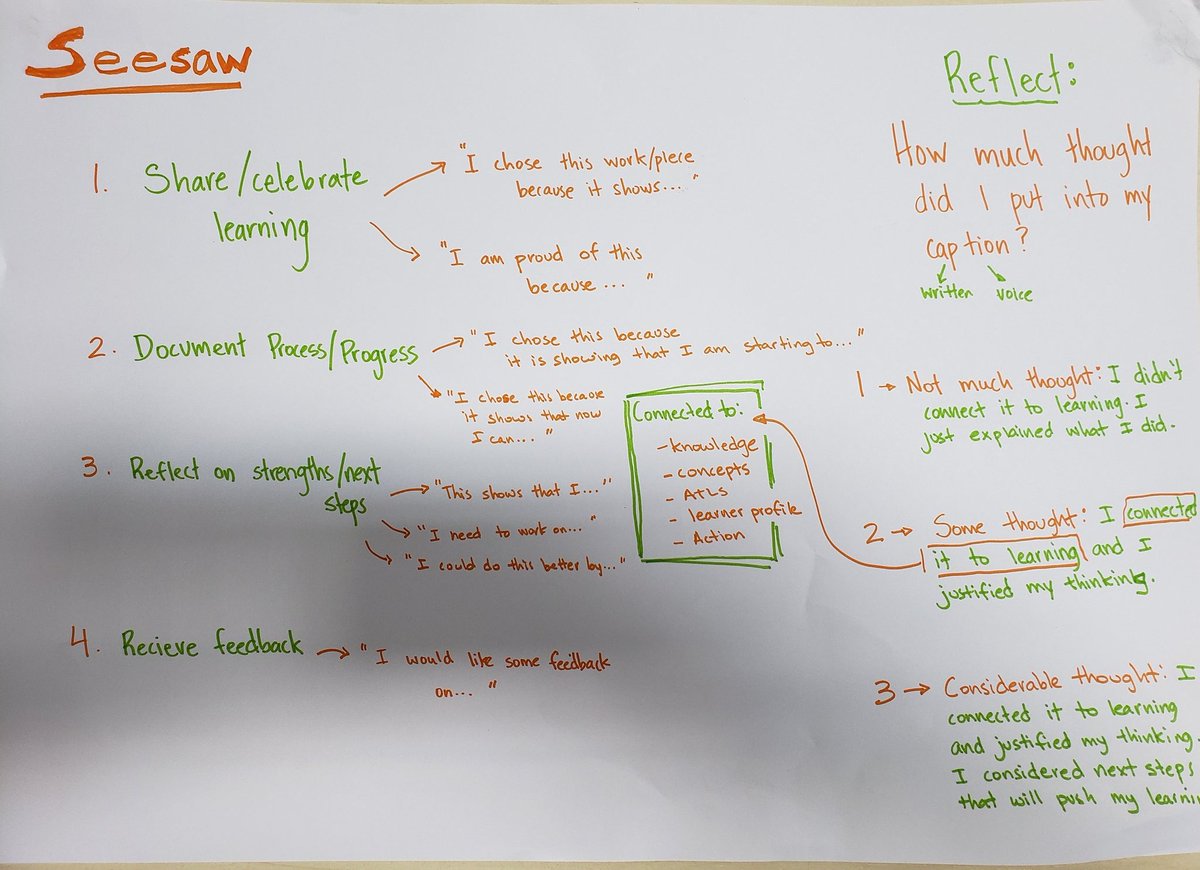 Seesaw
1. Share/celebrate
learning
"I chose this work/piece
because it shows...."
"I am proud of this
because... "
2. Document Process/Progress
"I chose this because
it is showing that I am starting to..."
"I chose this because
it shows that now
I can...."
3. Reflect on strengths/next
steps
"This shows that I..."
"I need to work on..."
"I could do this better by..."
4. Recieve feedback
"I would like some feedback
on... "
Connected to:
- knowledge
- concepts
- ATLs
- learner profile
- Action
Reflect:
How much thought
did I put into my
caption?
written voice
1 → Not much thought: I didn't
connect it to learning. I
just explained what I did.
2 → Some thought: I connected
it to learning and I
justified my thinking.
3 → Considerable thought: I
connected it to learning
and justified my thinking.
I considered next steps
that will push my